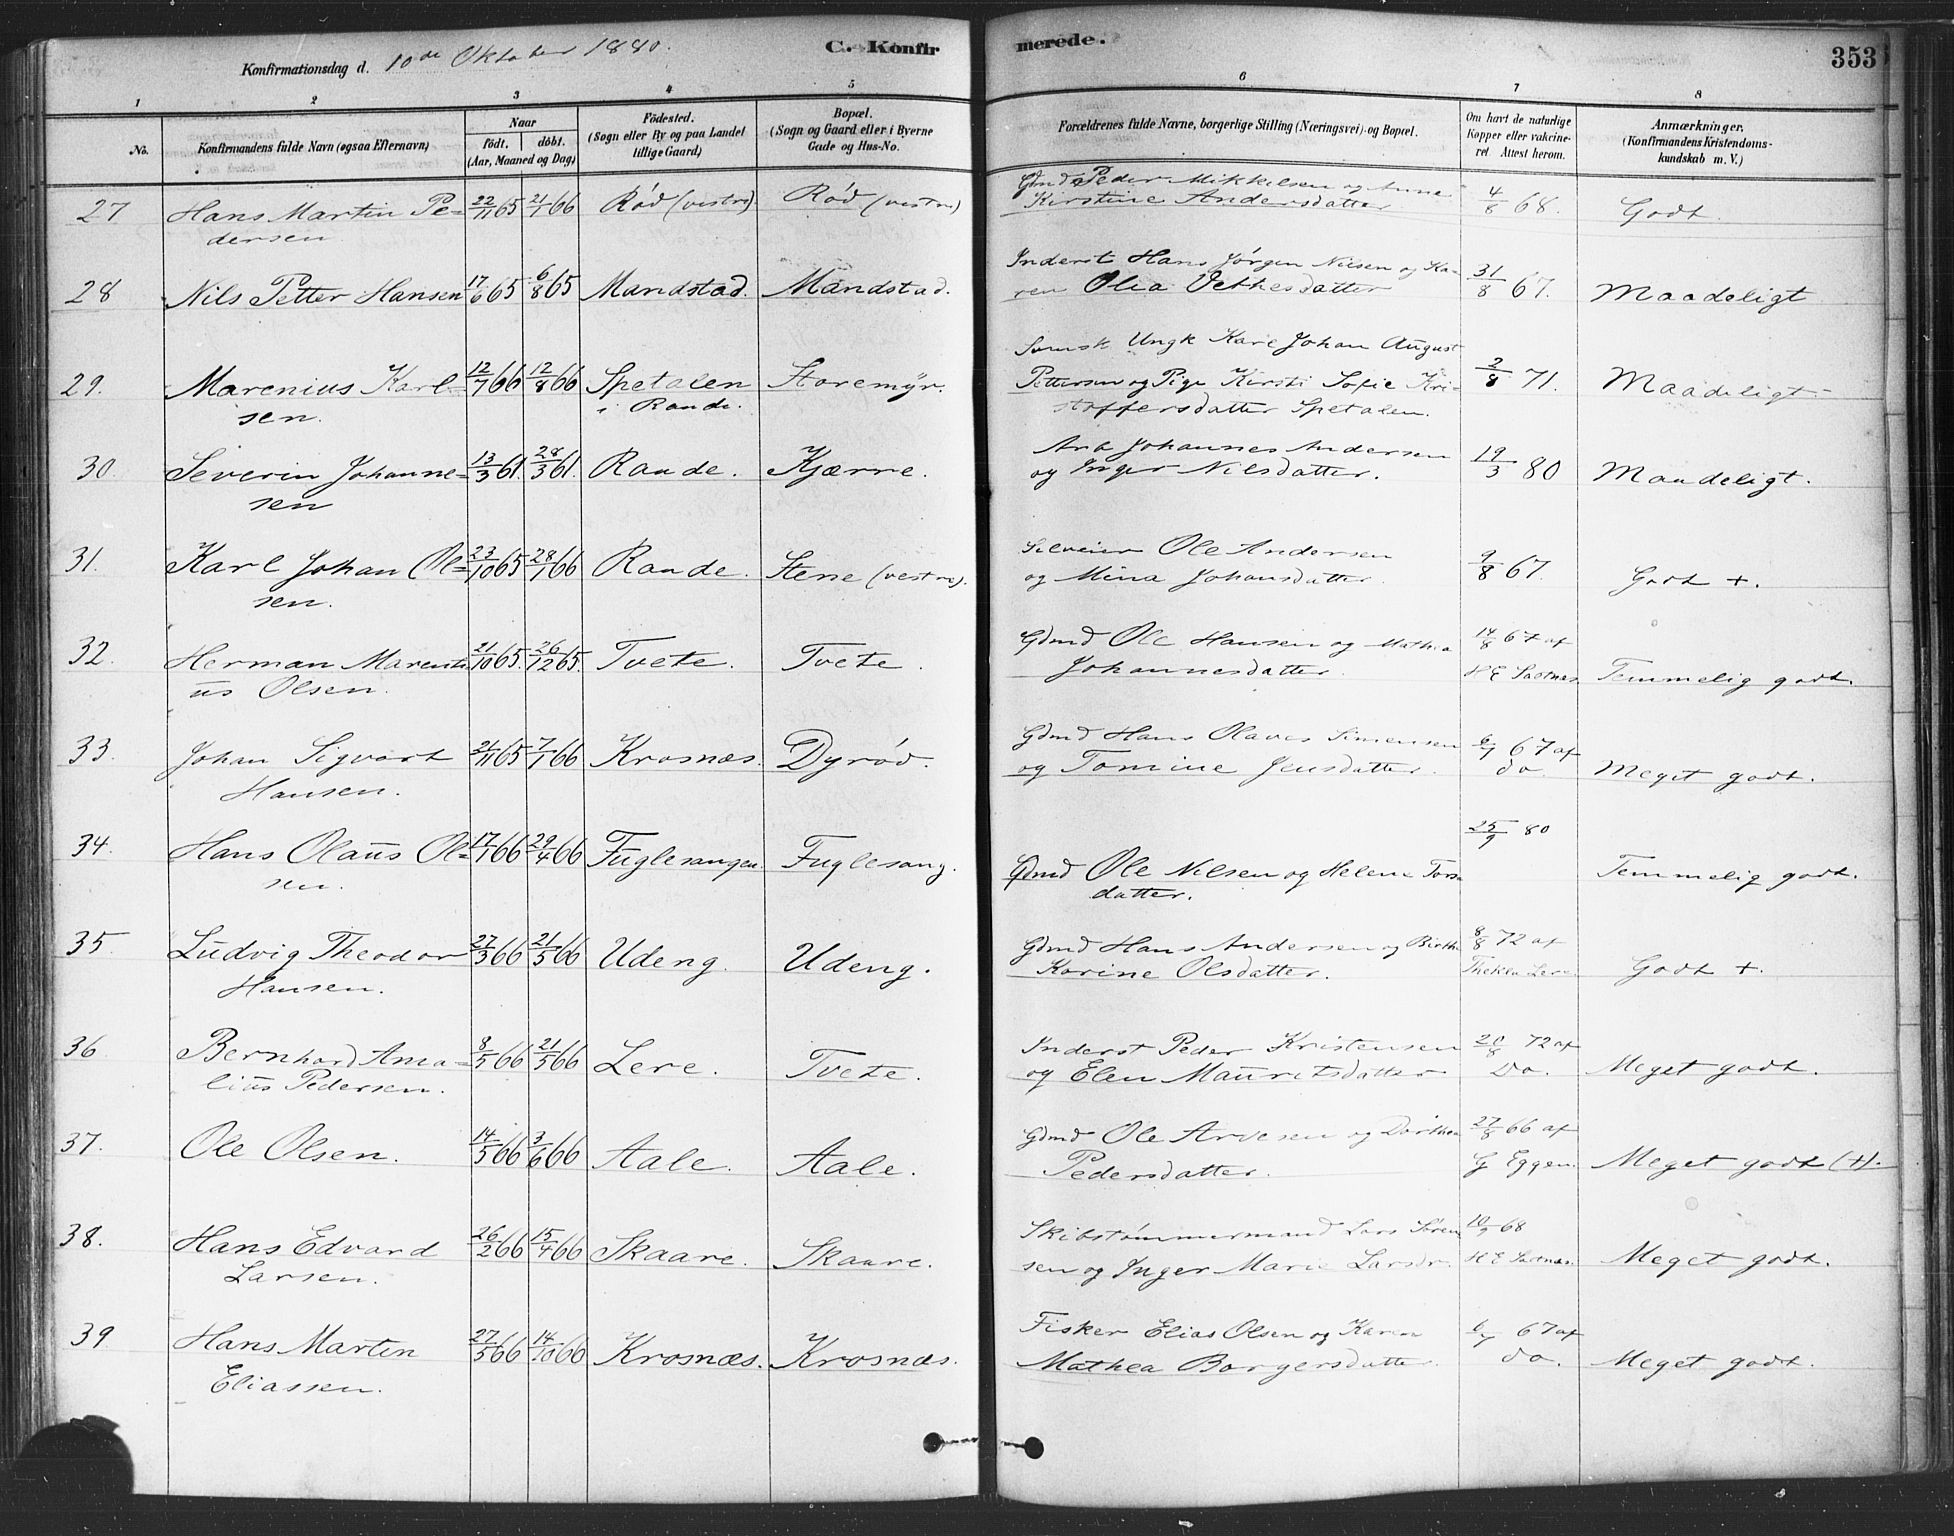 Konfirmationsdag d. 10de Oktober 1880.
C. Konfirmerede.
353
1 2 3 4 5 6 7 8
No.
Konfirmandens fulde Navn (ogsaa Efternavn)
Naar
født. døbt.
(Aar, Maaned og Dag)
Fødested.
(Sogn eller By og paa Landet
tillige Gaard)
Bopæl.
(Sogn og Gaard eller i Byerne
Gade og Hus-No.
Forældrenes fulde Navne, borgerlige Stilling (Næringsvei) og Bopæl.
Om havt de naturlige
Kopper eller vakcine-
ret. Attest herom.
Anmærkninger.
(Konfirmandens Kristendoms-
kundskab m. V.)
27 Hans Martin Pe= 22/11 65 21/1 66 Rød (vestre) Rød (vestre) Gmd Peder Mikkelsen og Anne 4/8 68. Godt.
dersen Kirstine Andersdatter
28 Nils Petter Hansen 17/6 65 6/8 65 Mandstad. Mandstad. Inderst Hans Jørgen Nilsen og Ka- 31/8 67. Maadeligt
ren Olia Vethesdatter
29. Marenius Karl= 12/7 66 12/8 66 Spetalen Storemyr. Svensk Ungk Karl Johan August 2/8 71. Maadeligt
sen. i Raade. Pettersen og Pige Kirsti Sofie Kri-
stoffersdatter Spetalen.
30. Severin Johanne= 13/3 61. 28/3 61. Raade. Kjærre. Arb Johannes Andersen 19/3 80 Maadeligt.
sen og Inger Nilsdatter.
31. Karl Johan Ol= 23/10 65 28/1 66 Raade. Stene (vestre). Selveier Ole Andersen 9/8 67. Godt +.
sen. og Mina Johansdatter
32. Herman Marenti 21/10 65. 26/12 65. Tvete. Tvete. Gdmd Ole Hansen og Mathea 14/8 67 af
us Olsen. Johannesdatter H E Sastnæs Temmelig godt.
33. Johan Sigvart 21/11 65 7/1 66 Krosnæs. Dyrød. Gdmd Hans Olaves Simensen 6/7 67 af
Hansen. og Tomine Jensdatter. do Meget godt.
34. Hans Olaus Ol= 17/1 66 29/4 66 Fuglesangen. Fuglesang. 25/9 80
sen. Gdmd Ole Nilsen og Helene Tors- Temmelig godt.
datter.
35 Ludvig Theodor 27/3 66 21/5 66 Udeng. Udeng. Gdmd Hans Andersen og Birthe 8/8 72 af
Hansen. Karine Olsdatter. Thekla Lere Godt +.
36 Bernhard Ama- 8/5 66 21/5 66 Lere. Tvete. Inderst Peder Kristensen 20/8 72 af
lius Pedersen. og Elen Mauritsdatter Do. Meget godt.
37. Ole Olsen. 14/5 66 3/6 66 Aale. Aale. Gdmd Ole Arvesen og Dorthea 27/8 66 af
Pedersdatter. G Eggen. Meget godt (+).
38. Hans Edvard 26/2 66 15/4 66 Skaare. Skaare. Skibstømmermand Lars Søren 10/9 68
Larsen. sen og Inger Marie Larsdr. H E Sastnæs. Meget godt.
39 Hans Martin 27/5 66 14/10 66 Krosnæs. Krosnæs. Fisker Elias Olsen og Karen 6/7 67 af
Eliassen. Mathea Borgersdatter. do. Meget godt.